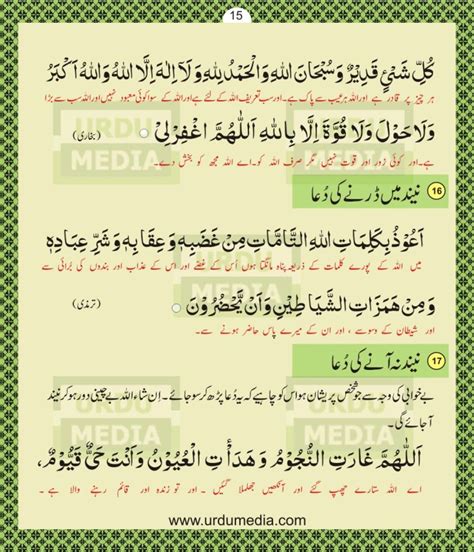 15
كُلِّ شَیْئٍ قَدِیْرٌ وَسُبْحَانَ اللهِ وَالْحَمْدُ لِلهِ وَلَآ اِلٰهَ اِلَّا اللهُ وَاللهُ اَكْبَرُ
ہر چیز پر قادر ہے اور اللہ ہر عیب سے پاک ہے۔ اور سب تعریف اللہ کے لئے ہے اور اللہ کے سوا کوئی معبود نہیں اور اللہ سب سے بڑا
وَلَا حَوْلَ وَلَا قُوَّةَ اِلَّا بِاللهِ اَللّٰهُمَّ اغْفِرْلِیْ (بخاری)
ہے۔ اور کوئی زور اور قوت نہیں مگر صرف اللہ کو۔ اے اللہ مجھ کو بخش دے۔
16 نیند میں ڈرنے کی دُعا
اَعُوْذُ بِكَلِمَاتِ اللهِ التَّامَّاتِ مِنْ غَضَبِهٖ وَعِقَابِهٖ وَشَرِّ عِبَادِهٖ
میں اللہ کے پورے کلمات کے ذریعہ پناہ مانگتا ہوں اُس کے غصے اور اس کے عذاب اور بندوں کی بُرائی سے
وَمِنْ هَمَزَاتِ الشَّيَاطِيْنِ وَاَنْ يَّحْضُرُوْنَ (ترمذی)
اور شیطان کے وسوسے ، اور ان کے میرے پاس حاضر ہونے سے ۔
17 نیند نہ آنے کی دُعا
بے خوابی کی وجہ سے جو شخص پریشان ہو اس کو چاہیے کہ یہ دُعا پڑھ کر سو جائے۔ اِن شاء اللہ بے چینی دور ہو کر نیند
آجائے گی۔
اَللّٰهُمَّ غَارَتِ النُّجُوْمُ وَهَدَأَتِ الْعُيُوْنُ وَاَنْتَ حَیٌّ قَيُّوْمٌ،
اے اللہ ستارے چھپ گئے اور آنکھیں جھلملا گئیں ۔ اور تو زندہ اور قائم رہنے والا ہے ۔
www.urdumedia.com
URDU
MEDIA
URDU
MEDIA
URDU
MEDIA